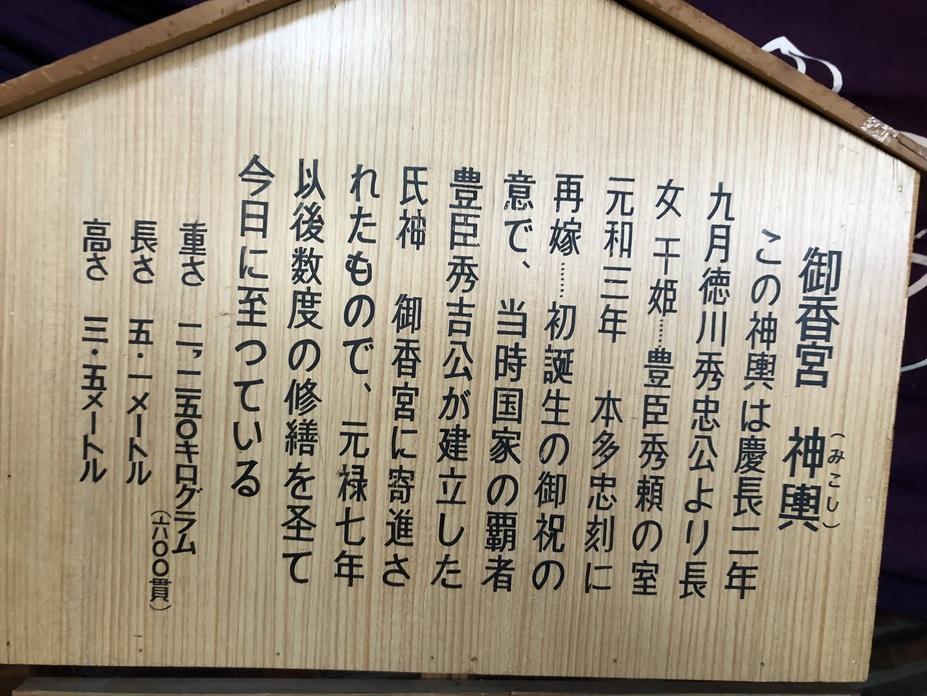 御香宮 神輿(みこし)
この神輿は慶長二年
九月徳川秀忠公より長
女 干姫……豊臣秀頼の室
元和三年 本多忠刻に
再嫁……初誕生の御祝の
意で、当時国家の覇者
豊臣秀吉公が建立した
氏神 御香宮に寄進さ
れたもので、元禄七年
以後数度の修繕を圣て
今日に至つている
重さ 二,二五〇キログラム(六〇〇貫)
長さ 五・一メートル
高さ 三・五メートル